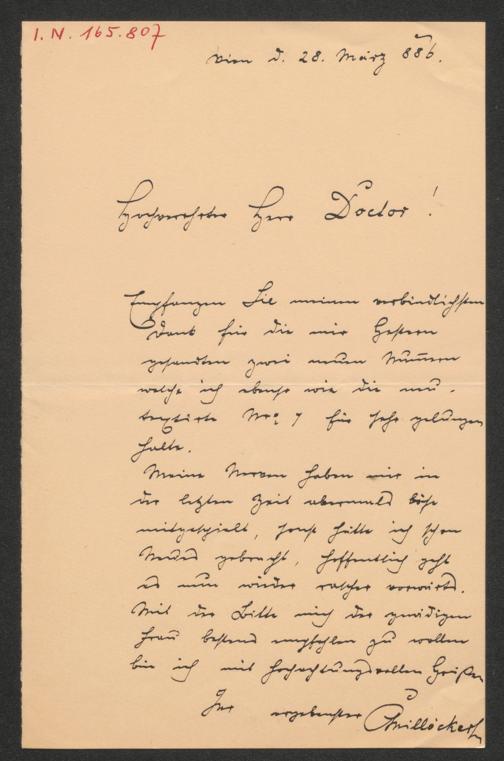 I.N. 165.807
Wien d. 28. März 886.
Hochverehrter Herr Doctor!
Empfangen Sie meinen verbindlichsten
Dank für die mir gestern
gesandten zwei neuen Nummern
welche ich ebenso wie die neu-
textirte Nro 7 für sehr gelungen
halte.
Meine Nerven haben mir in
der letzten Zeit abermals böse
mitgespielt, sonst hätte ich schon
Neues gebracht, hoffentlich geht
es nun wieder rascher vorwärts.
Mit der Bitte mich der gnädigen
Frau bestens empfehlen zu wollen
bin ich mit hochachtungsvollen Grüßen
Ihr ergebenster CMillöcker